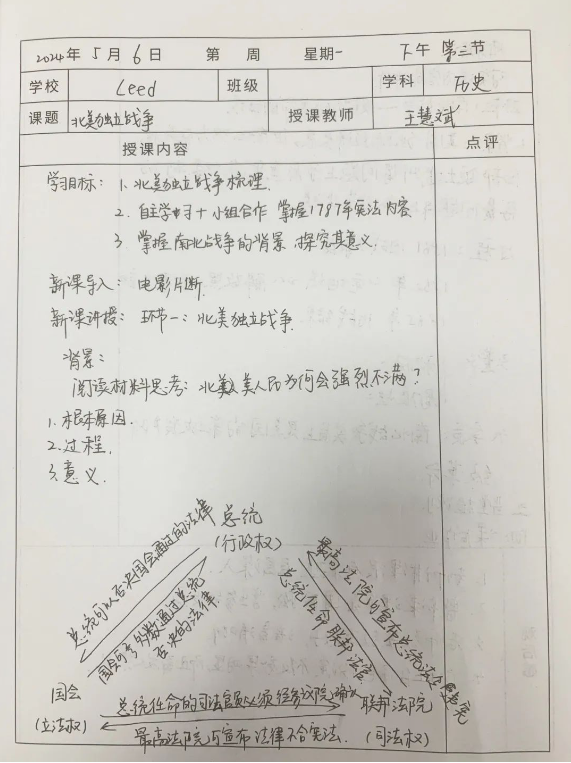 2024年 5月 6日 第 周 星期一 下午 第三节
学校 Leed 班级 学科 历史
课题 北美独立战争 授课教师 王慧斌
授课内容 点评
学习目标: 1. 北美独立战争梳理.
2. 自主学习+小组合作 掌握1787年宪法内容
3. 掌握南北战争的背景,探究其意义.
新课导入: 电影片断.
新课讲授: 环节一: 北美独立战争.
背景:
阅读材料思考: 北美人民为何会强烈不满?
1. 根本原因.
2. 过程.
3. 意义.
总统
(行政权)
总统可以否决国会通过的法律
国会可多数通过总统
否决的法律
最高法院可宣布总统法令违宪
总统任命联邦法官
国会
(立法权)
总统任命的司法官员必须经参议院
联邦法院
(司法权)
最高法院可宣布法律不合宪法.